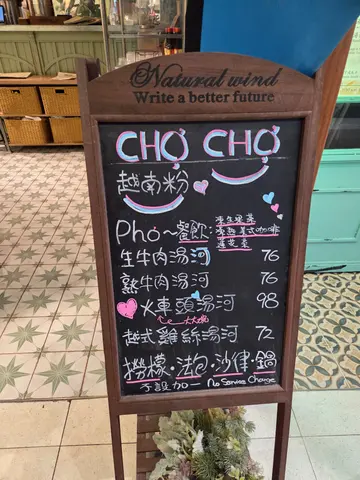 Natural wind
Write a better future
CHỢ CHỢ
越南粉
Phở~餐飲:
生牛肉湯河 76
熟牛肉湯河 76
火車頭湯河 98
越式雞絲湯河 72
撈檬·法包·沙律·鍋
不設加一 No Service Charge